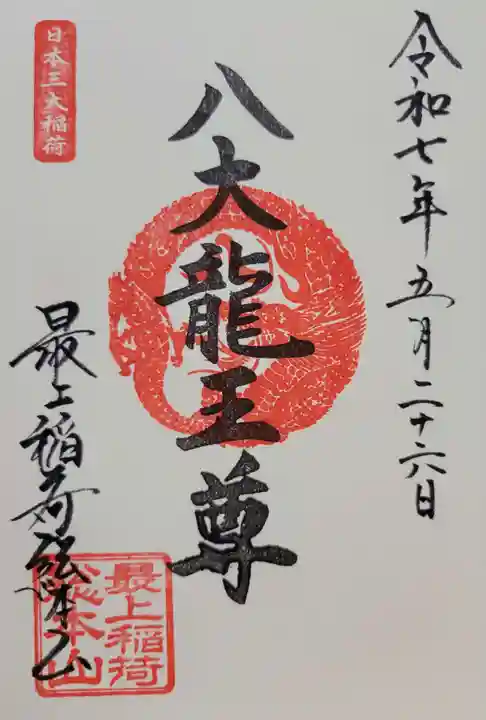 令和七年五月二十六日
八大龍王尊
日本三大稲荷
最上稲荷総本山
最上稲荷
総本山